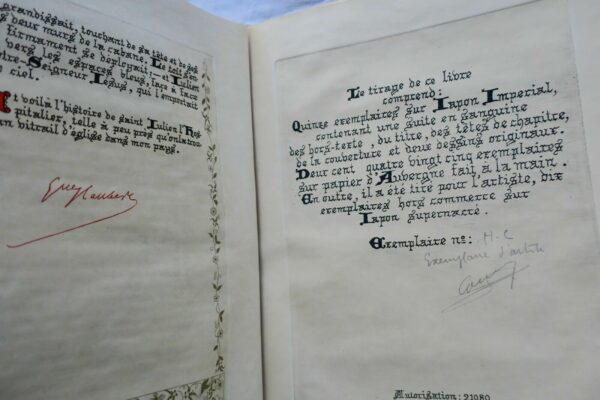 grandissait, touchant de sa tête et de ses
deux murs de la cabane. Le
firmament se déployait; — et Julien
vers les espaces bleus, face à face
Seigneur Jésus, qui l'emportait
ciel.
Et voilà l'histoire de saint Julien l'Hos
pitalier, telle à peu près qu'on la trouve
un vitrail d'église dans mon pays.
Gve Flaubert
Le tirage de ce livre
comprend:
Quinze exemplaires sur Japon Impérial,
contenant une suite en sanguine
des hors-texte, du titre, des têtes de chapitre,
de la couverture et deux dessins originaux.
Deux cent quatre vingt cinq exemplaires
sur papier d'Auvergne fait à la main.
En outre, il a été tiré pour l'artiste, dix
exemplaires hors commerce sur
Japon supernacré.
Exemplaire no: H-C
Exemplaire d'artiste
Autorisation: 21080